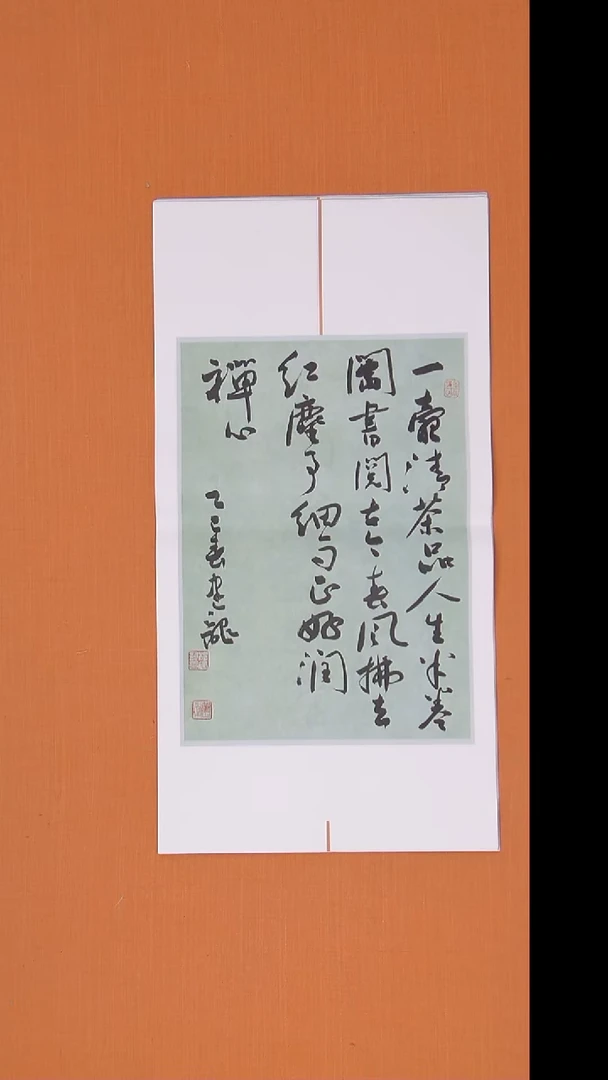 一壶清茶品人生半卷
图书阅古今春风拂去
红尘事细雨正好润
禅心
乙巳春建龙